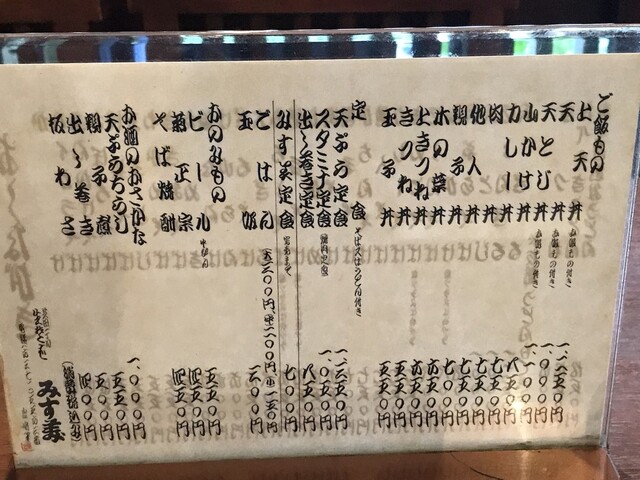 ご飯もの
上天丼 お吸もの付き 一、二五〇円
天丼 お吸もの付き 一、〇〇〇円
天とじ丼 お吸もの付き 一、一〇〇円
山かけ丼 八五〇円
カレー丼 七五〇円
肉丼 七五〇円
他人丼 七五〇円
親子丼 七〇〇円
木の葉丼 六五〇円
上きつね丼 六五〇円
きつね丼 五五〇円
玉子丼 五五〇円
定食 そば又はうどん付き
天ぷら定食 一、二五〇円
スタミナ定食 (焼肉定食) 一、〇五〇円
出し巻き定食 八五〇円
定食 七〇〇円
ごはん 一五〇円
三〇〇円
おのみもの
ビール 中びん 五五〇円
菊正宗 四五〇円
そば焼酎 四五〇円
お酒のおさかな
天ぷら 一、〇〇〇円
親子煮 五五〇円
出し巻き 五五〇円
板わさ 四〇〇円